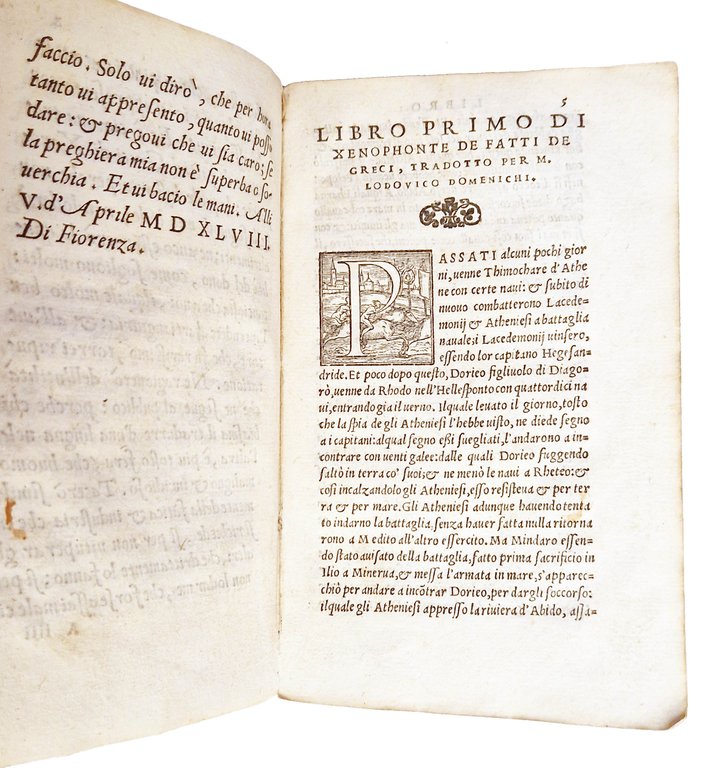 faccio. Solo ui dirò, che per hora
tanto ui appresento, quanto ui posso
dare: & pregoui che ui sia caro; se
la preghiera mia non è superba o so-
uerchia. Et ui bacio le mani. Alli
V. d'Aprile M D XLVIII.
Di Fiorenza.
5
LIBRO PRIMO DI
XENOPHONTE DE FATTI DE
GRECI, TRADOTTO PER M.
LODOVICO DOMENICHI.
PASSATI alcuni pochi gior
ni, uenne Thimochare d'Athe
ne con certe naui: & subito di
nuouo combatterono Lacede-
monij & Atheniesi a battaglia
nauale; i Lacedemonij uinsero,
essendo lor capitano Hegesan-
dride. Et poco dopo questo, Dorieo figliuolo di Diago-
rò, uenne da Rhodo nell'Hellesponto con quattordici na
ui, entrando gia il uerno. Ilquale leuato il giorno, tosto
che la spia de gli Atheniesi l'hebbe uisto, ne diede segno
a i capitani: alqual segno eßi suegliati, l'andarono a in-
contrare con uenti galee: dalle quali Dorieo fuggendo
saltò in terra co' suoi; & ne menò le naui a Rheteo: &
cosi incalzandolo gli Atheniesi, esso resisteua & per ter
ra & per mare. Gli Atheniesi adunque hauendo tenta
to indarno la battaglia, senza hauer fatta nulla ritorna
rono a Medito all'altro essercito. Ma Mindaro essen-
do stato auisato della battaglia, fatto prima sacrificio in
Ilio a Minerua, & messa l'armata in mare, s'apparec-
chiò per andare a incõtrar Dorieo, per dargli soccorso:
ilquale gli Atheniesi appresso la riuiera d'Abido, assa-